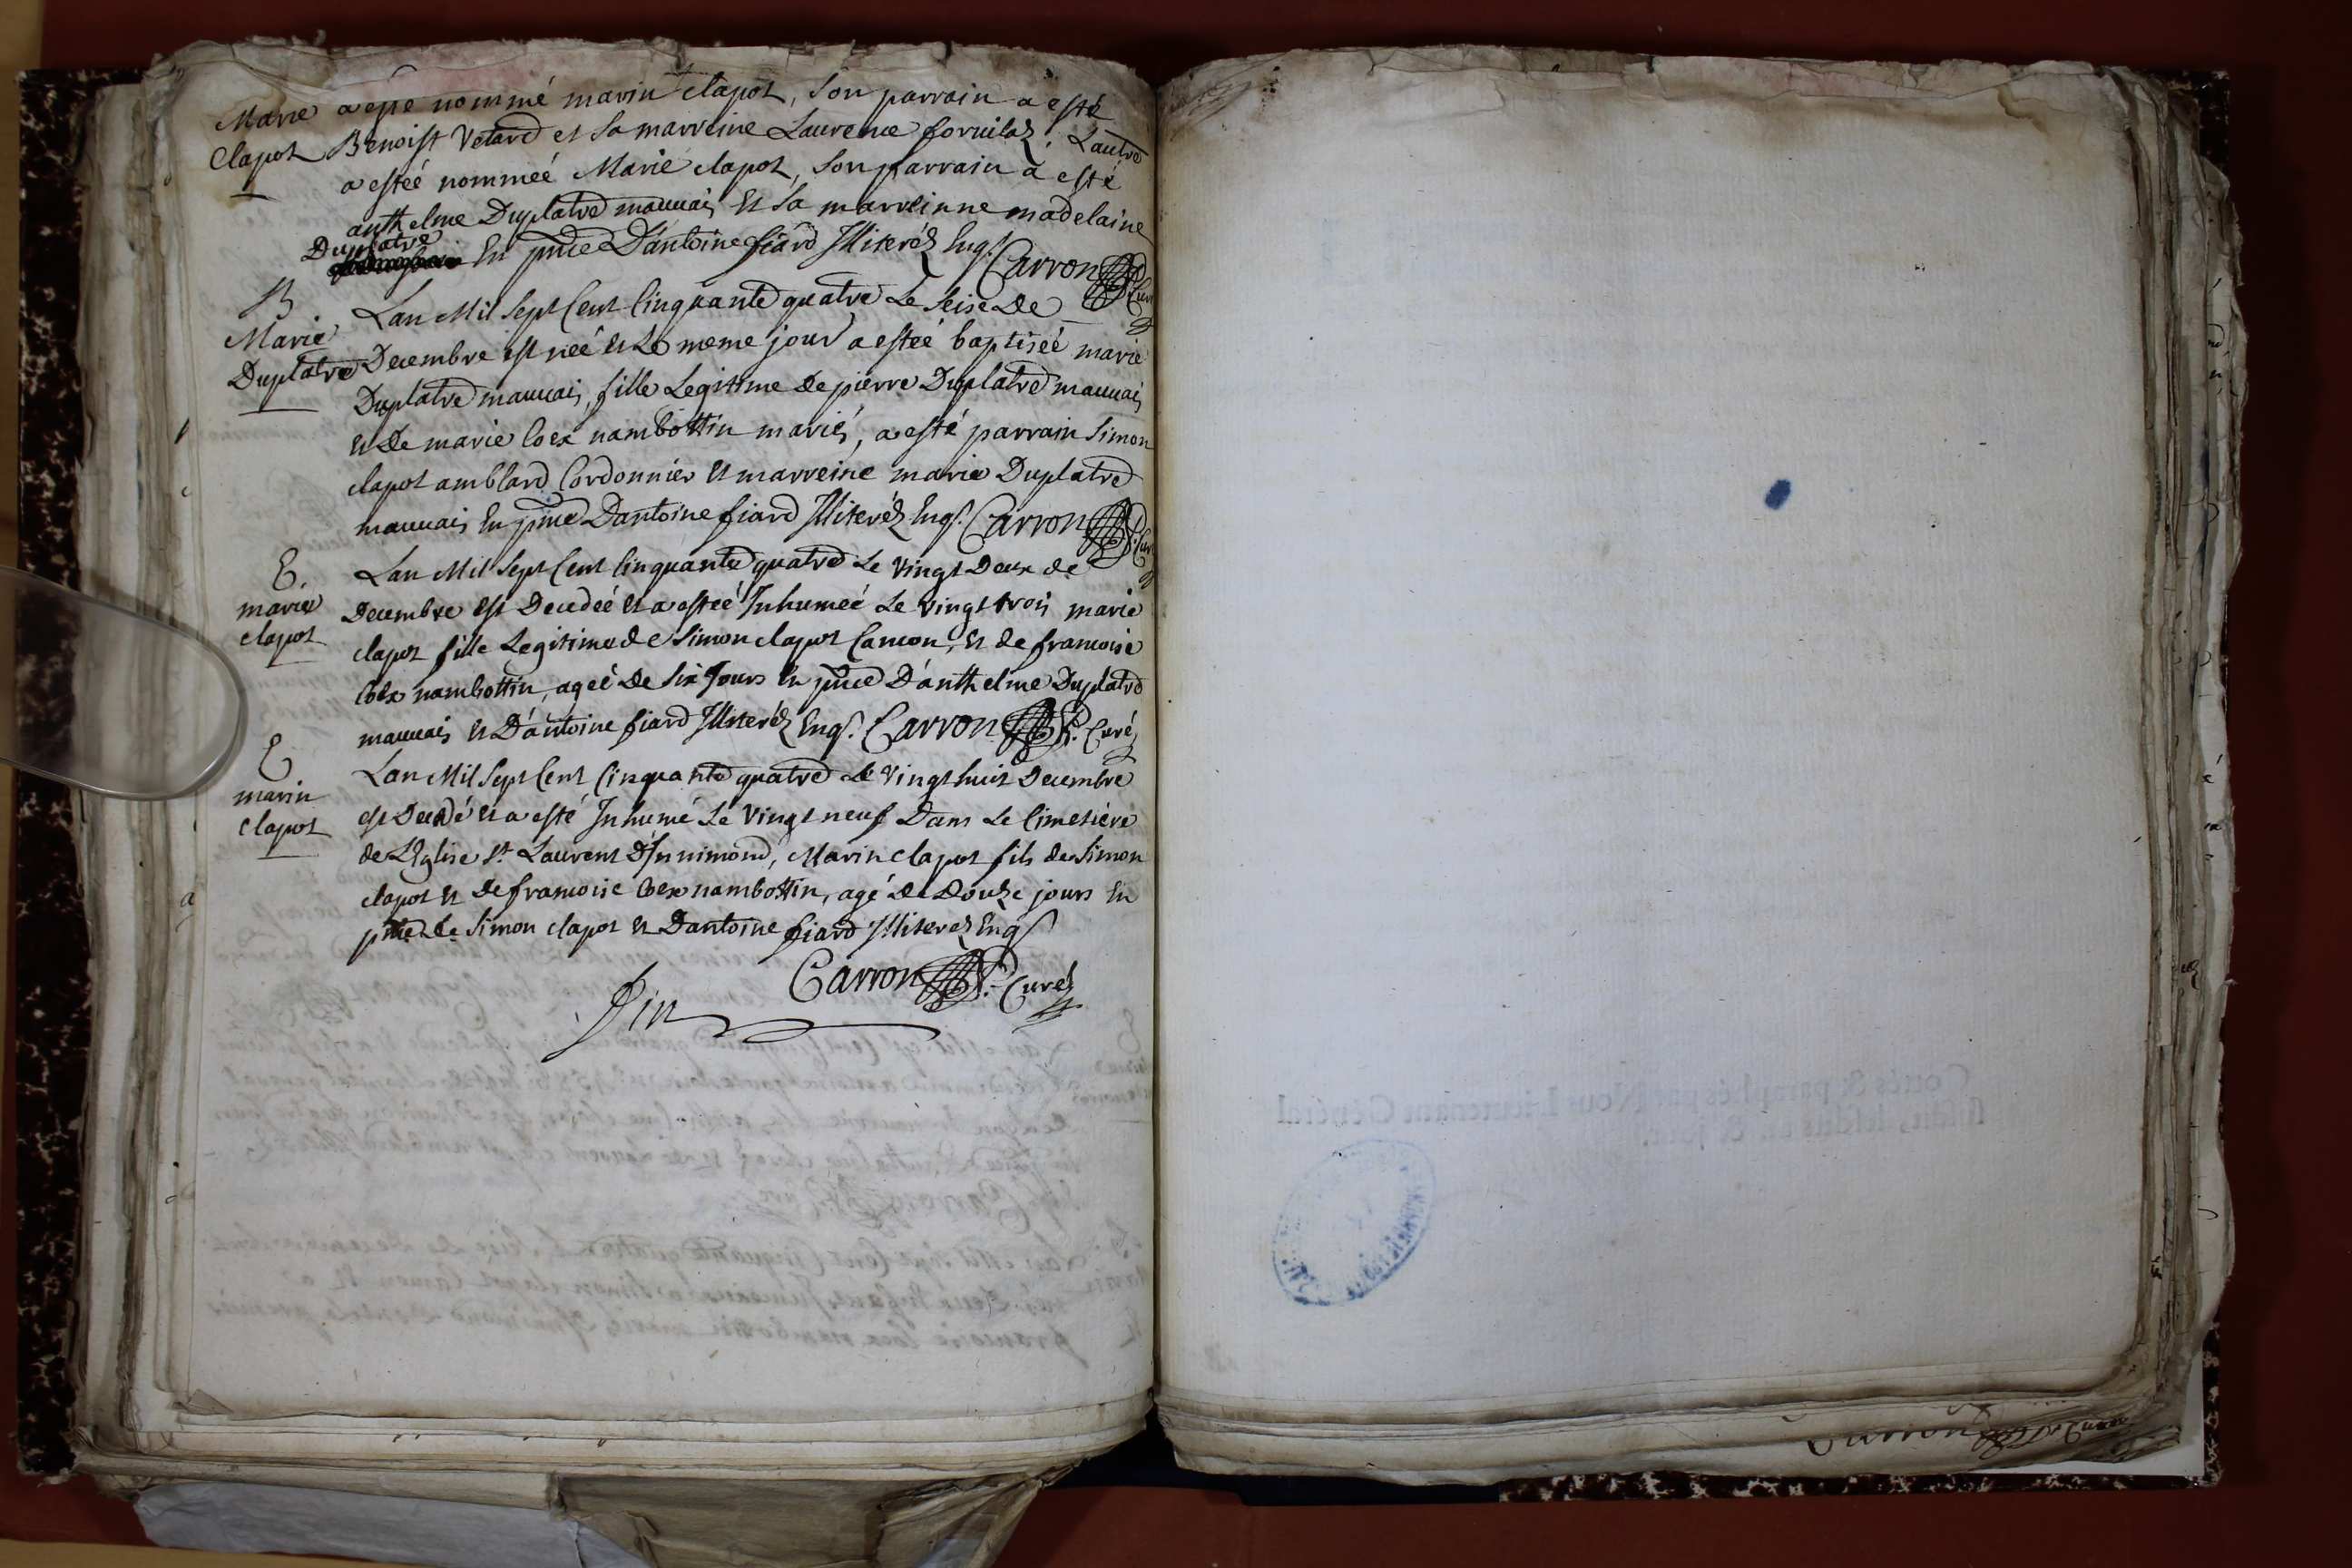 Marie
Clapot
a esté nommé marin clapot, Son parrain a esté
Benoist Vetard et Sa marreine Laurence fornilaz. Lautre
a esteé nommeé Marie clapot, Son parrain a esté
anthelme Duplatre mauuais Et Sa marreinne madelaine
Duplatre En pnce D'antoine fiard Illiteréz Enqs. Carron Cur
B
Marie
Duplatre
Lan Mil Sept Cent Cinquante quatre Le Seise De
Decembre est neé et Le meme jour a esteé baptiseé marie
Duplatre mauuais, fille Legitime De pierre Duplatre mauuais
et De marie Coex nambottin mariés, a esté parrain Simon
clapot amblard Cordonnier et marreine marie Duplatre
mauuais En pnce Dantoine fiard Illiteréz Enqs. Carron P. Cur
E.
marie
clapot
Lan Mil Sept Cent Cinquante quatre Le vingt Deux de
Decembre est Decedeé et a esteé Inhumeé Le vingt trois marie
clapot fille Legitime de Simon clapot Camon, et de francoise
Coex nambottin, ageé De Six Jours En pnce D'anthelme Duplatre
mauuais et D'antoine fiard Illiteréz Enqs. Carron P. Curé
E
marin
clapot
Lan Mil Sept Cent Cinquante quatre Le vingt huit Decembre
est Decedé et a esté Inhumé Le vingt neuf Dans Le Cimetiére
de L'Eglise St. Laurent D'Innimond, Marin clapot fils de Simon
clapot et De francoise Coex nambottin, agé De Douze jours En
pnce De Simon clapot et Dantoine fiard Illiteréz Enqs
Carron P. Curé
Fin